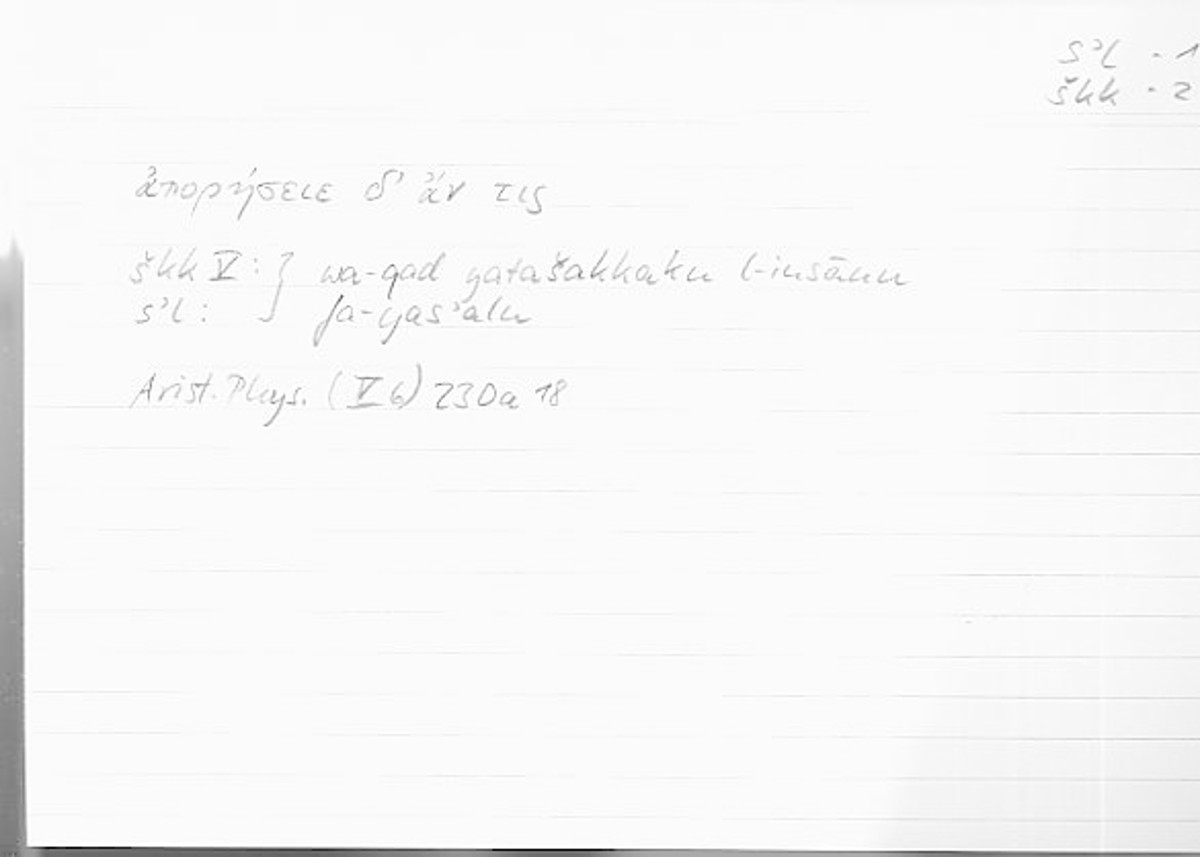 sʾl - 1
škk - 2
ἀπορήσειε δ' ἄν τις
škk V: } wa-qad yatašakkaku l-insānu
sʾl: } fa-yasʾalu
Arist. Phys. (V 6) 230a 18